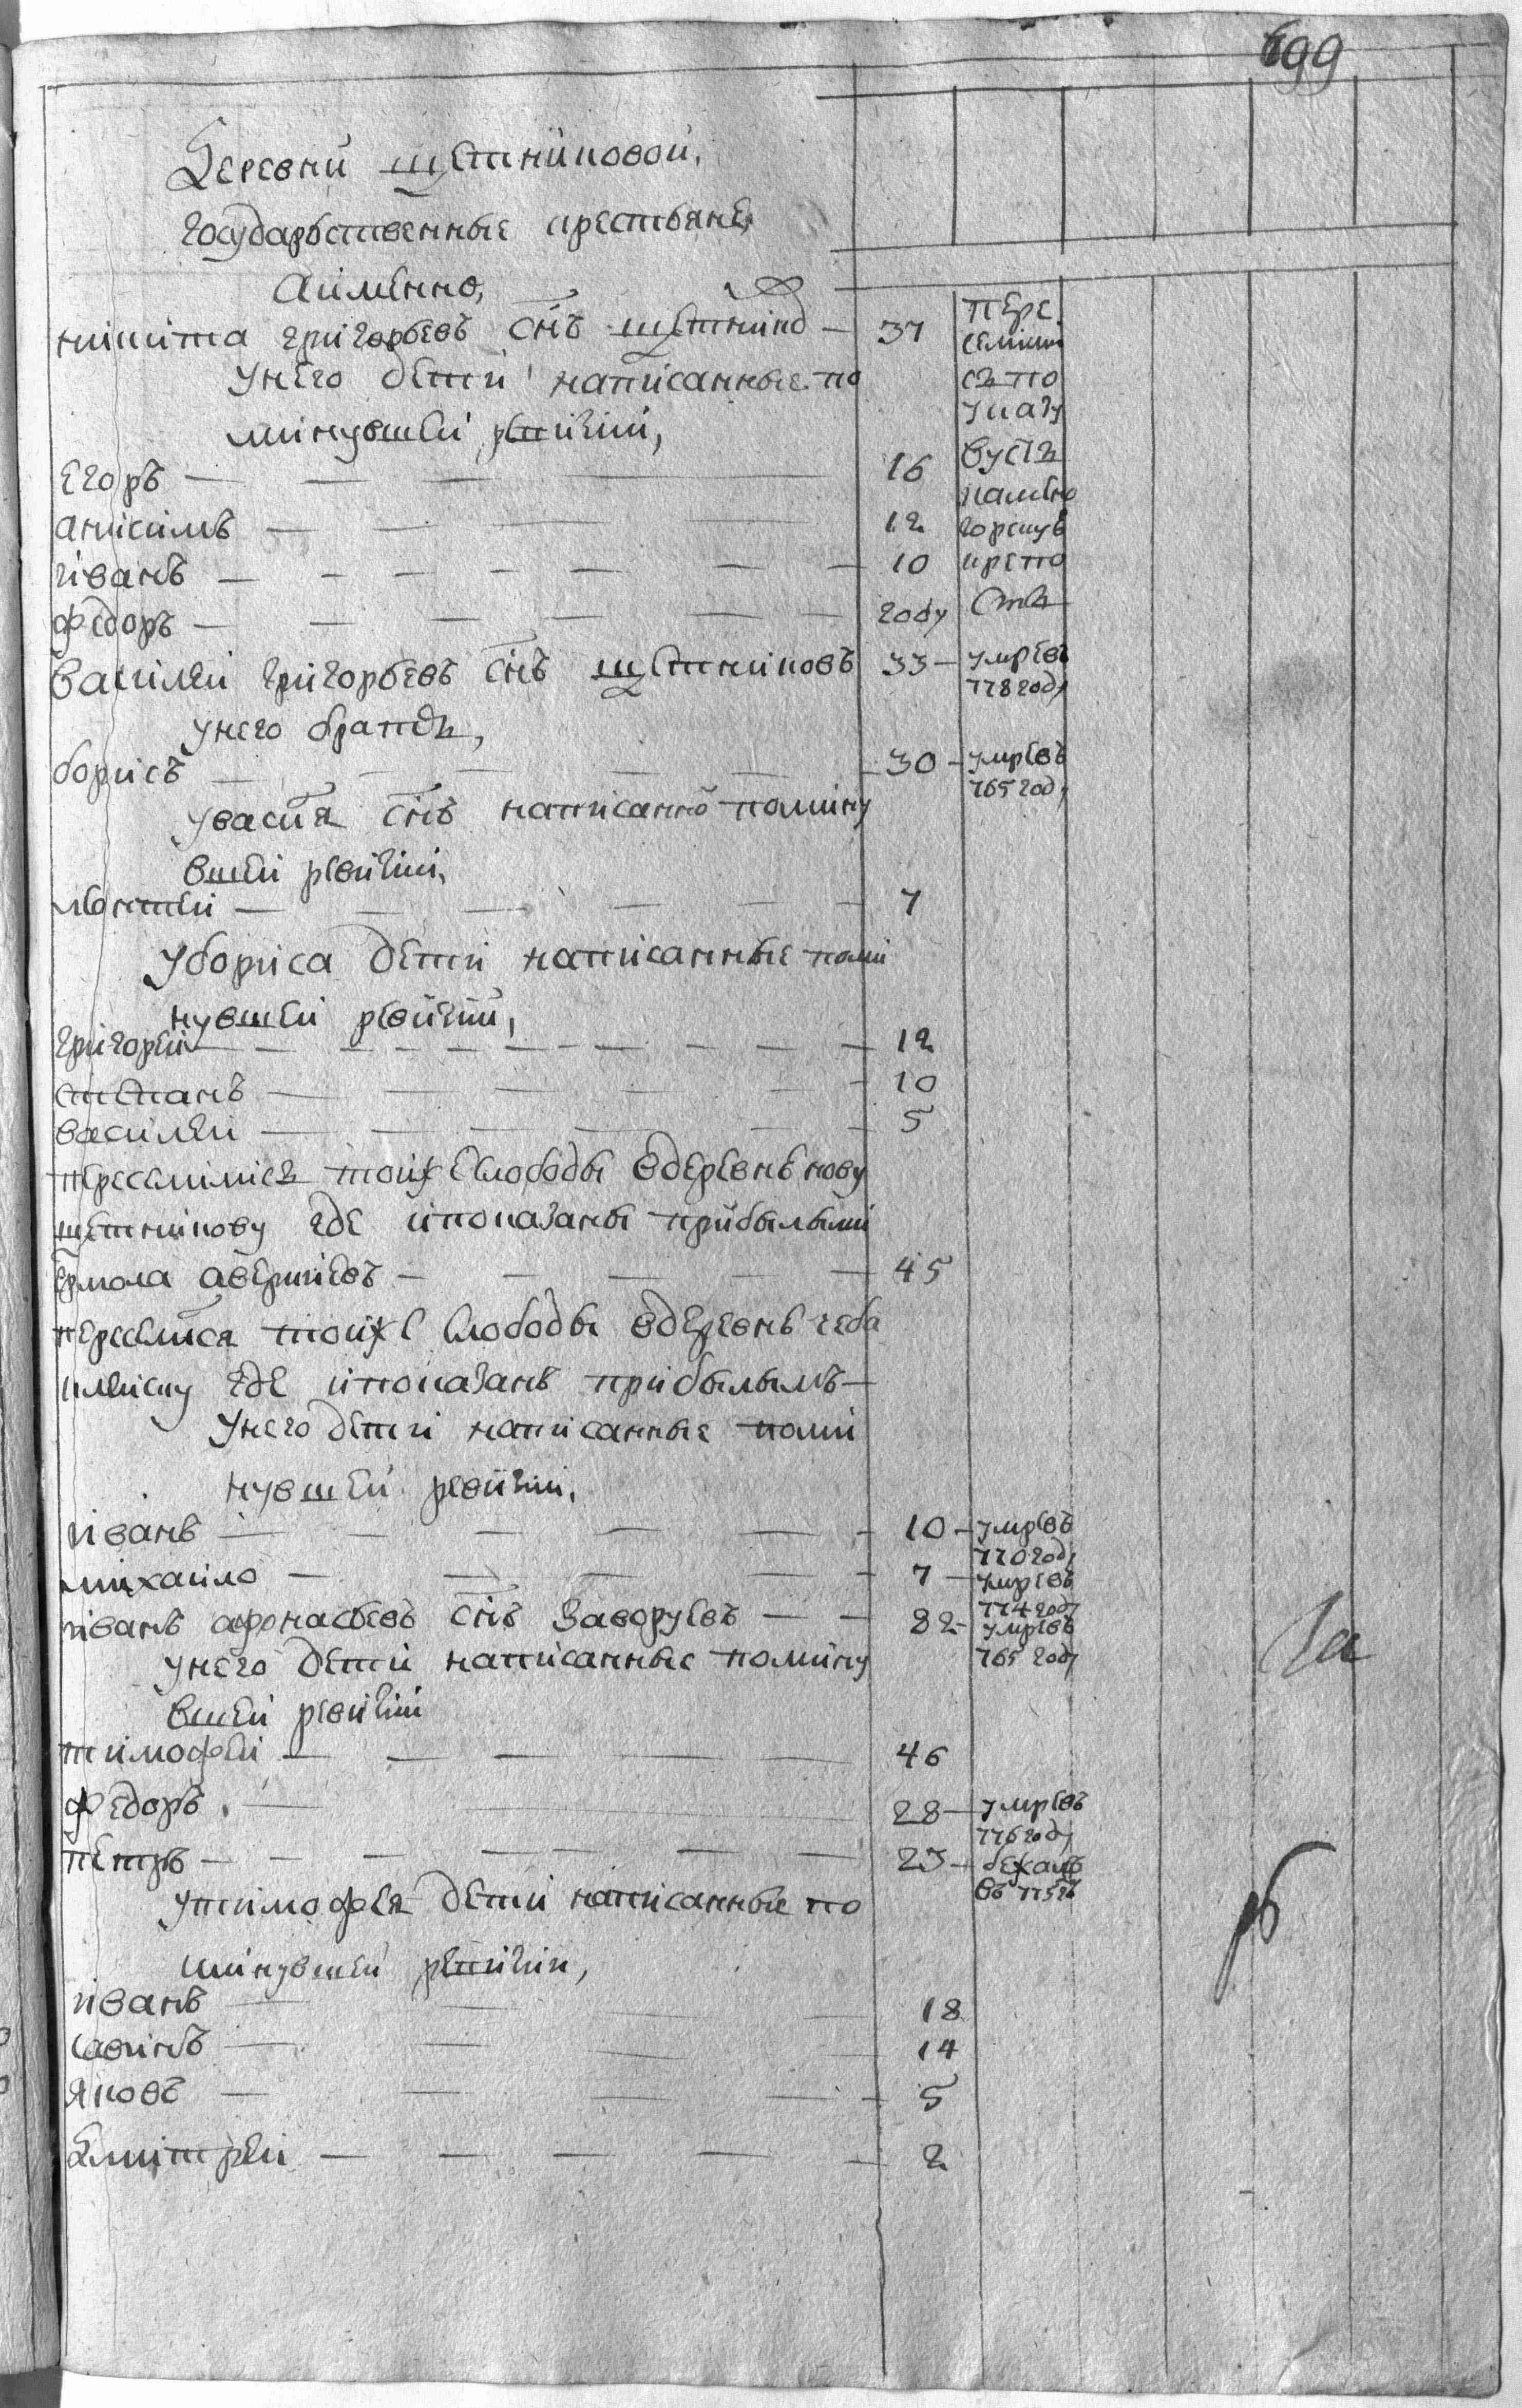 699
Деревни щетниковой,
государьственные крестьяне,
аименно,
никита григорьевъ снъ щетнико — 37 пере
селили
унего дети написанные по сь по
указу
минувшей ревизии,
егоръ — 16 вусть
камено
анисимъ — 12 горскую
иванъ — 10 крепо
федоръ — году сть
василей григорьевъ снъ щетниковъ 33 — умре въ
778 году
унего братъ,
борисъ — 30 — умре въ
765 году
увасия снъ написанно помину
вшей ревизии,
леонтей — 7
убориса дети написанные поми
нувшей ревизии,
григорей — 12
степанъ — 10
василей — 5
переселились тойже слободы вдеревне нову
щетникову где ипоказаны прибылыми
ермола аверкиевъ — 45
переселился тойже слободы вдеревнь чеба
клинску где ипоказанъ прибылымъ —
унего дети написанные поми
нувшей ревизии,
иванъ — 10 — умре въ
770 году
михаило — 7 — умре въ
774 году
иванъ афонасьевъ снъ заворуевъ — 82 — умре въ
765 году
унего дети написанные помину
вшей ревизии
тимофей — 46
федоръ — 28 — умре въ
776 году
петръ — 23 — бежалъ
въ 775 г
утимофея дети написанные по
минувшей ревизии,
иванъ — 18
савинъ — 14
яковъ — 5
дмитрей — 2